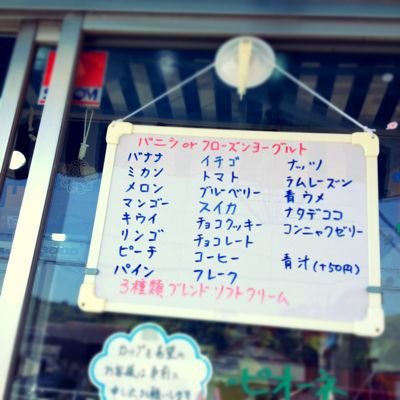 バニラ or フローズンヨーグルト
バナナ
ミカン
メロン
マンゴー
キウイ
リンゴ
ピーチ
パイン
イチゴ
トマト
ブルーベリー
スイカ
チョコクッキー
チョコレート
コーヒー
フレーク
ナッツ
ラムレーズン
青ウメ
ナタデココ
コンニャクゼリー
青汁(+50円)
3種類ブレンドソフトクリーム
カップを希望の
お客様は事前に
申しお願いします
ピオーネ
SECOM